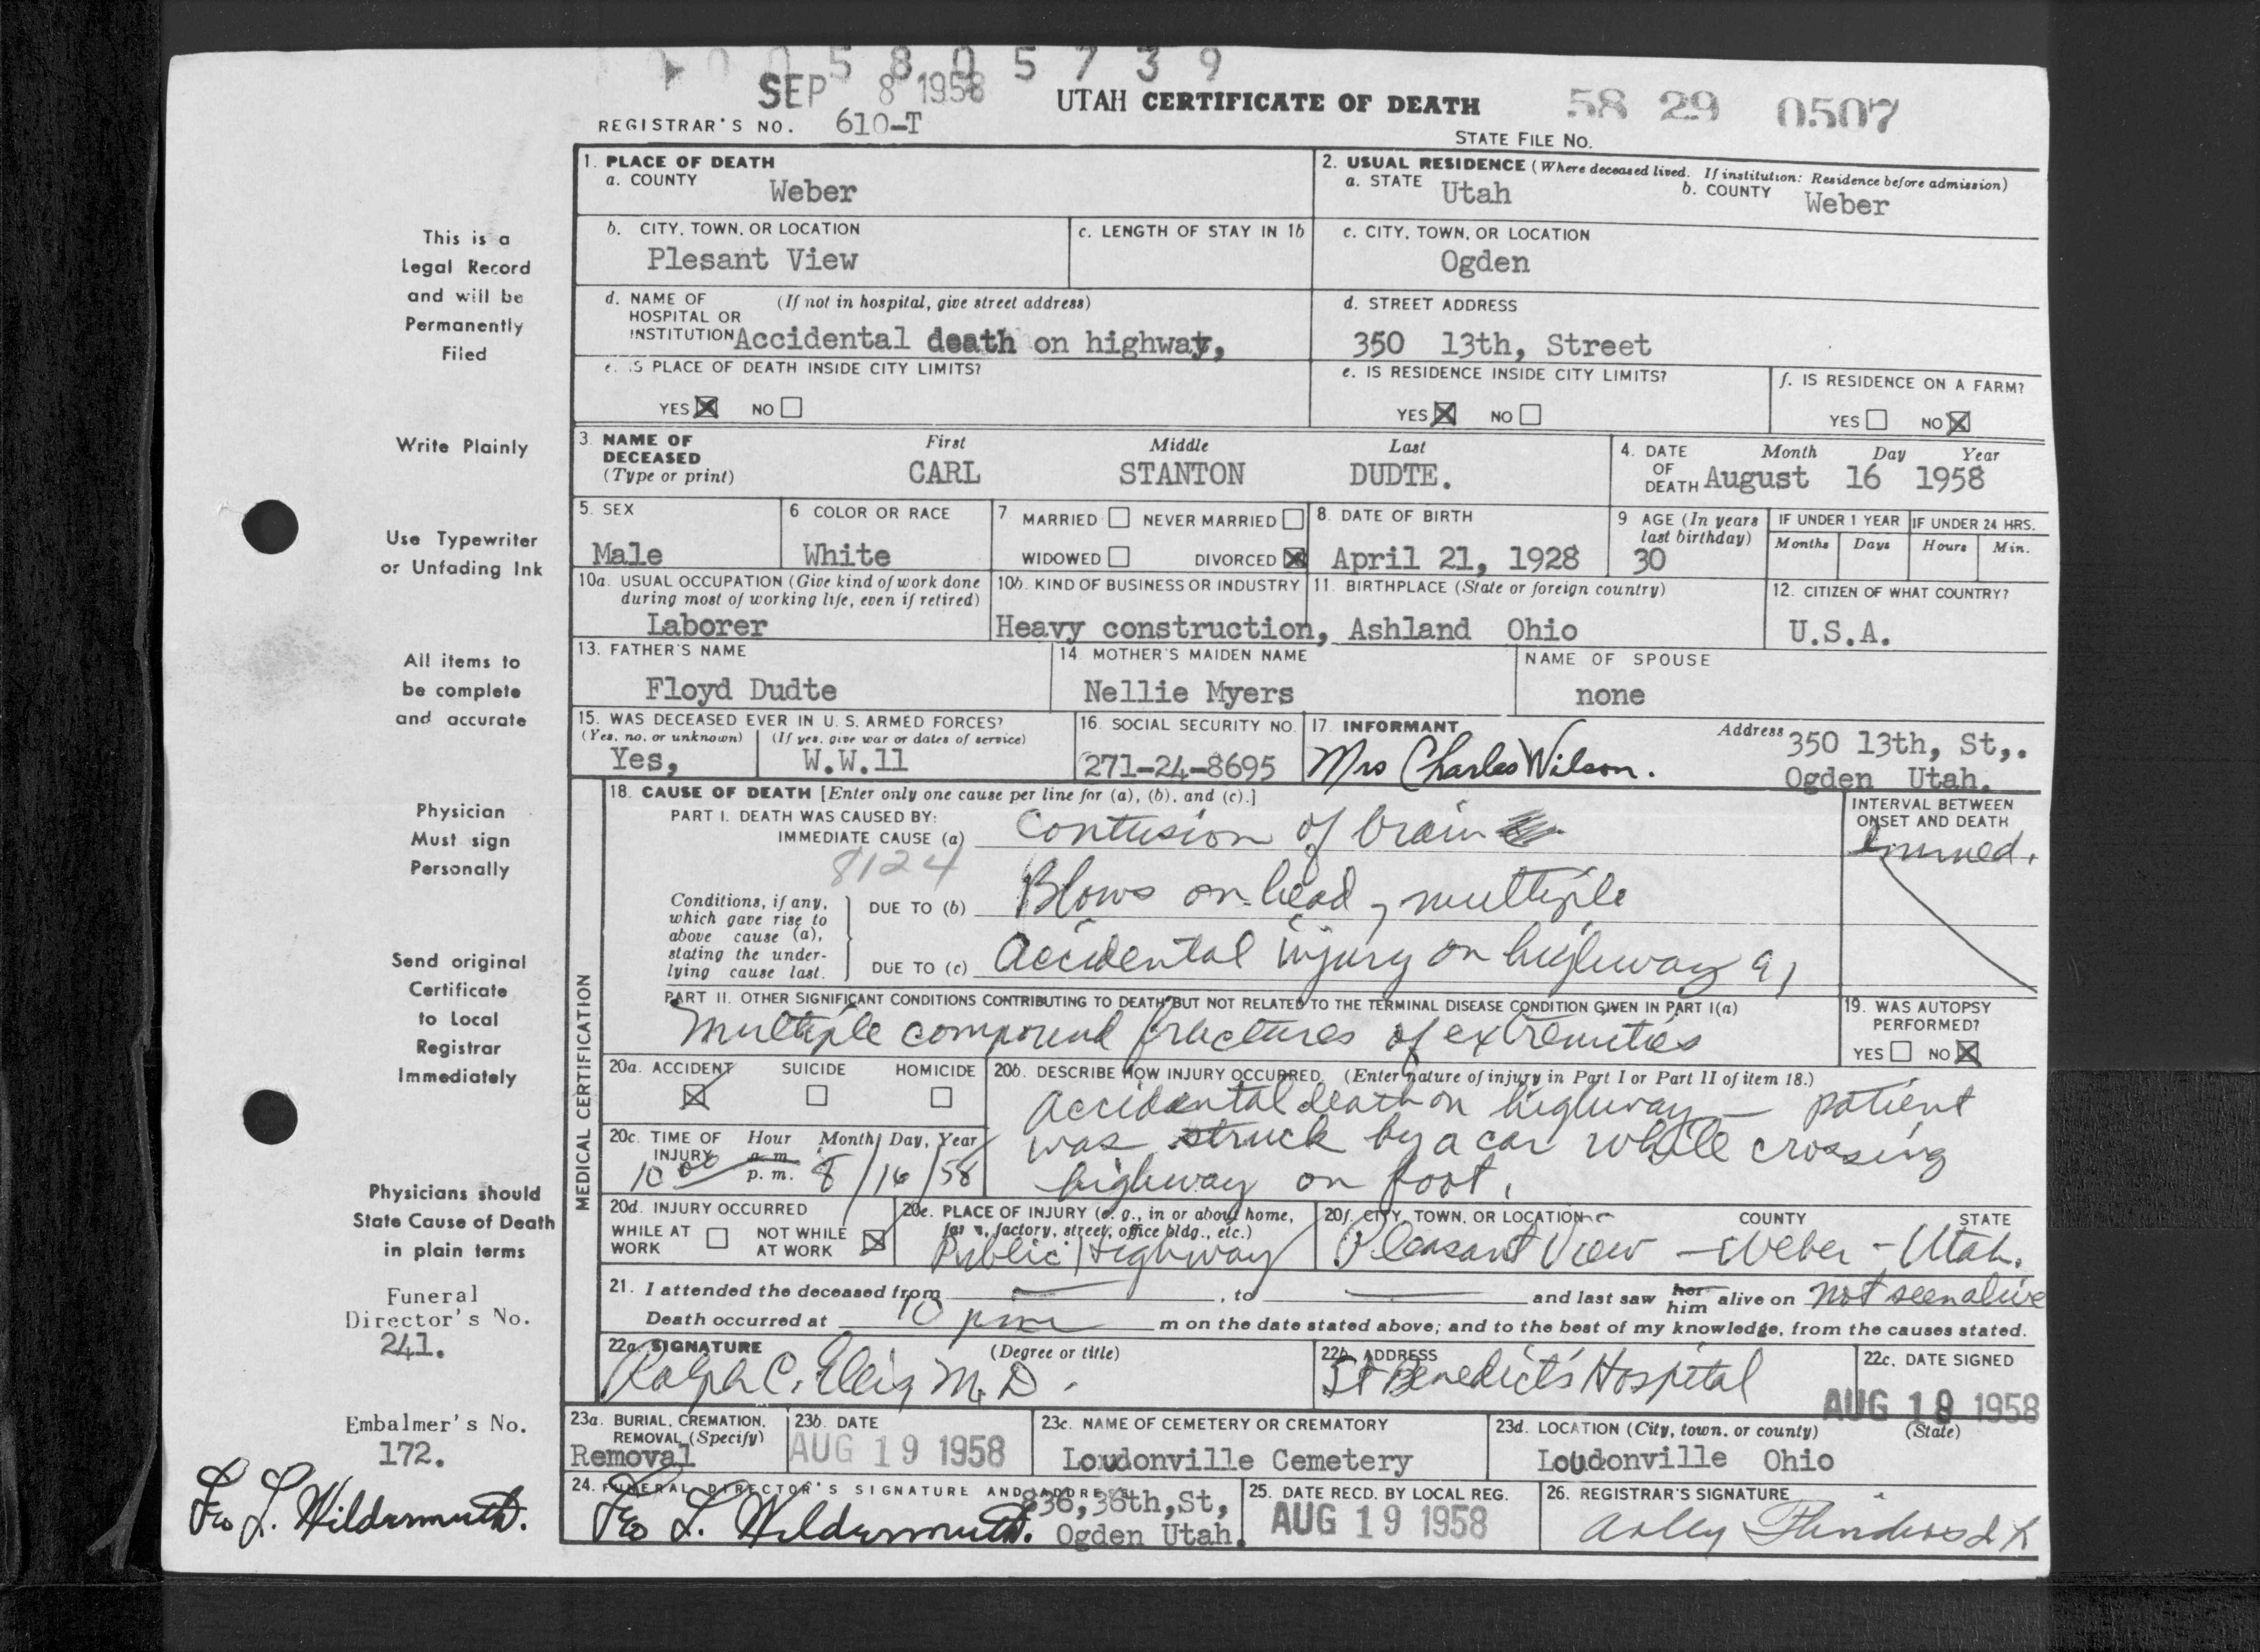 0 0 5 8 0 5 7 3 9
SEP 8 1958
UTAH CERTIFICATE OF DEATH
58 29 0507
REGISTRAR'S NO. 610-T
STATE FILE NO.
1. PLACE OF DEATH
a. COUNTY Weber
2. USUAL RESIDENCE (Where deceased lived. If institution: Residence before admission)
a. STATE Utah b. COUNTY Weber
b. CITY, TOWN, OR LOCATION
Plesant View
c. LENGTH OF STAY IN 1b
c. CITY, TOWN, OR LOCATION
Ogden
d. NAME OF HOSPITAL OR INSTITUTION (If not in hospital, give street address)
Accidental death on highway,
d. STREET ADDRESS
350 13th, Street
e. IS PLACE OF DEATH INSIDE CITY LIMITS?
YES NO
e. IS RESIDENCE INSIDE CITY LIMITS?
YES NO
f. IS RESIDENCE ON A FARM?
YES NO
3. NAME OF DECEASED (Type or print)
First Middle Last
CARL STANTON DUDTE.
4. DATE OF DEATH
Month Day Year
August 16 1958
5. SEX
Male
6 COLOR OR RACE
White
7 MARRIED NEVER MARRIED
WIDOWED DIVORCED
8. DATE OF BIRTH
April 21, 1928
9 AGE (In years last birthday)
30
IF UNDER 1 YEAR
Months Days
IF UNDER 24 HRS.
Hours Min.
10a. USUAL OCCUPATION (Give kind of work done during most of working life, even if retired)
Laborer
10b. KIND OF BUSINESS OR INDUSTRY
Heavy construction,
11. BIRTHPLACE (State or foreign country)
Ashland Ohio
12. CITIZEN OF WHAT COUNTRY?
U.S.A.
13. FATHER'S NAME
Floyd Dudte
14. MOTHER'S MAIDEN NAME
Nellie Myers
NAME OF SPOUSE
none
15. WAS DECEASED EVER IN U. S. ARMED FORCES?
(Yes, no, or unknown) (If yes, give war or dates of service)
Yes, W.W.11
16. SOCIAL SECURITY NO.
271-24-8695
17. INFORMANT
Mrs Charles Wilson.
Address 350 13th, St,.
Ogden Utah.
MEDICAL CERTIFICATION
18. CAUSE OF DEATH [Enter only one cause per line for (a), (b), and (c).]
PART I. DEATH WAS CAUSED BY:
IMMEDIATE CAUSE (a) Contusion of brain
8124
INTERVAL BETWEEN ONSET AND DEATH
Immed.
Conditions, if any, which gave rise to above cause (a), stating the underlying cause last.
DUE TO (b) Blows on head, multiple
DUE TO (c) Accidental injury on highway 91
PART II. OTHER SIGNIFICANT CONDITIONS CONTRIBUTING TO DEATH BUT NOT RELATED TO THE TERMINAL DISEASE CONDITION GIVEN IN PART I(a)
Multiple compound fractures of extremities
19. WAS AUTOPSY PERFORMED?
YES NO
20a. ACCIDENT SUICIDE HOMICIDE
20b. DESCRIBE HOW INJURY OCCURRED. (Enter nature of injury in Part I or Part II of item 18.)
Accidental death on highway — patient
was struck by a car while crossing
highway on foot.
20c. TIME OF INJURY
Hour Month, Day, Year
10 00 a. m. p. m. 8/16/58
20d. INJURY OCCURRED
WHILE AT WORK NOT WHILE AT WORK
20e. PLACE OF INJURY (e. g., in or about home, farm, factory, street, office bldg., etc.)
Public Highway
20f. CITY, TOWN, OR LOCATION COUNTY STATE
Pleasant View - Weber - Utah.
21. I attended the deceased from — , to — and last saw her him alive on not seen alive
Death occurred at 10 pm m on the date stated above; and to the best of my knowledge, from the causes stated.
22a. SIGNATURE (Degree or title)
Ralph C. Ellis M.D.
22b. ADDRESS
St Benedict's Hospital
22c. DATE SIGNED
AUG 18 1958
23a. BURIAL, CREMATION, REMOVAL (Specify)
Removal
23b. DATE
AUG 19 1958
23c. NAME OF CEMETERY OR CREMATORY
Loudonville Cemetery
23d. LOCATION (City, town, or county) (State)
Loudonville Ohio
24. FUNERAL DIRECTOR'S SIGNATURE AND ADDRESS
L. Wildermuth.
836, 36th, St,
Ogden Utah.
25. DATE RECD. BY LOCAL REG.
AUG 19 1958
26. REGISTRAR'S SIGNATURE
Flinders
This is a
Legal Record
and will be
Permanently
Filed
Write Plainly
Use Typewriter
or Unfading Ink
All items to
be complete
and accurate
Physician
Must sign
Personally
Send original
Certificate
to Local
Registrar
Immediately
Physicians should
State Cause of Death
in plain terms
Funeral
Director's No.
241.
Embalmer's No.
172.
L. Wildermuth.